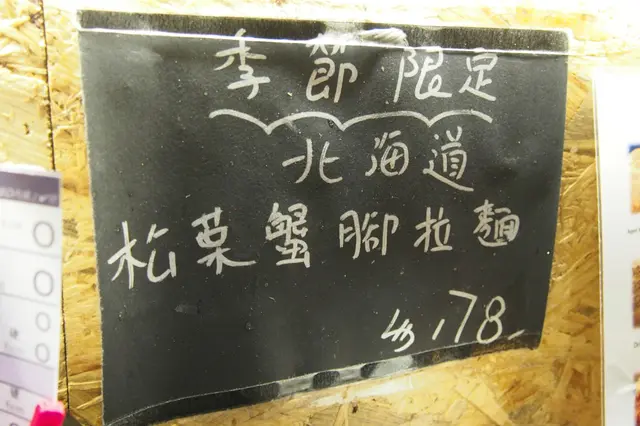 季節限定
北海道
松葉蟹腳拉麵
$178